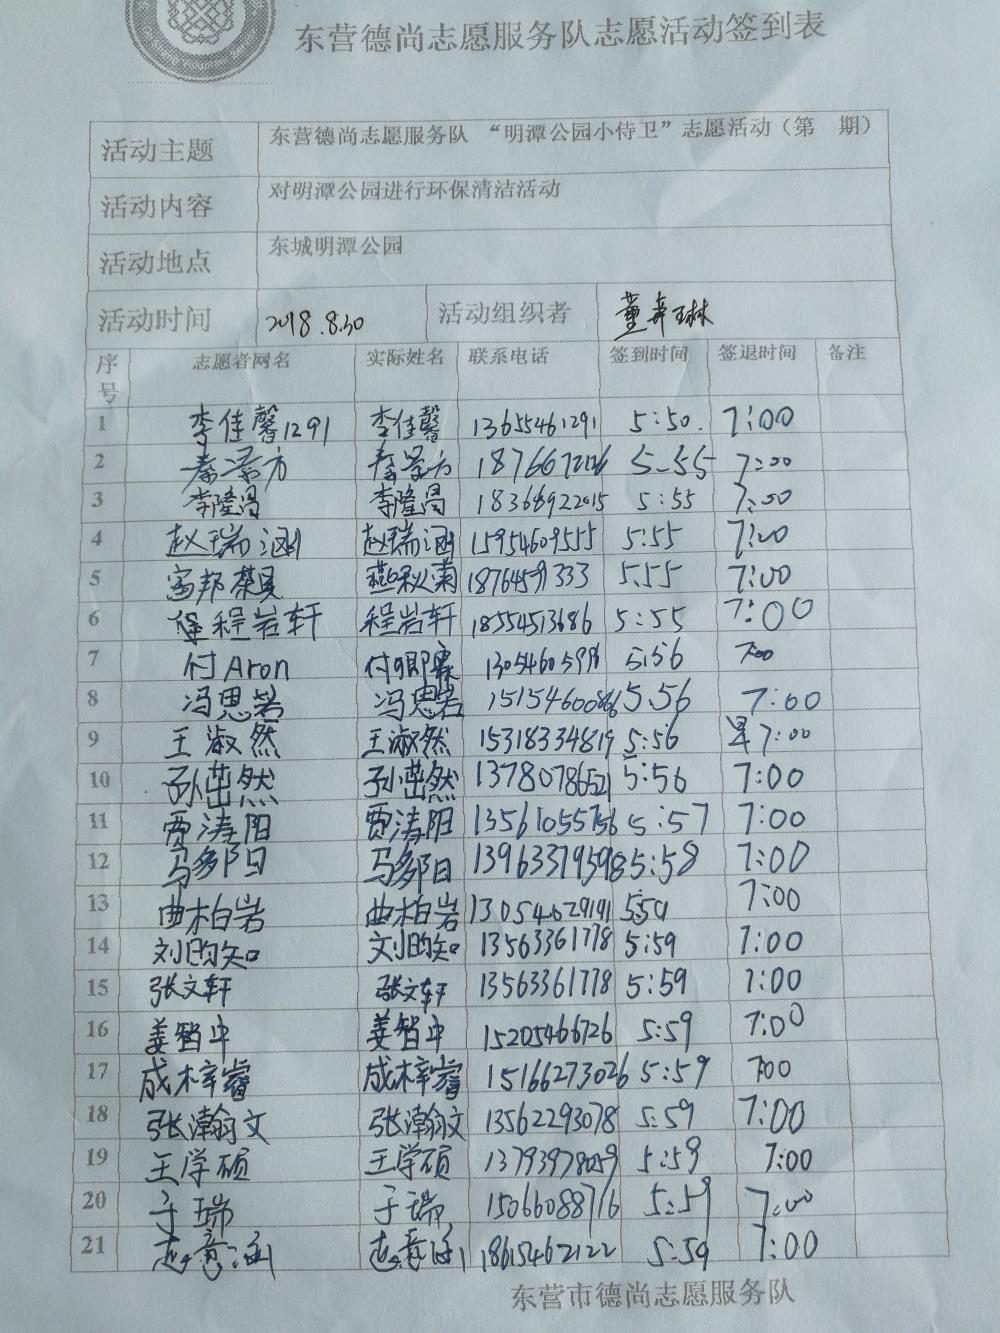 东营德尚志愿服务队志愿活动签到表
活动主题 东营德尚志愿服务队 “明潭公园小侍卫”志愿活动（第 期）
活动内容 对明潭公园进行环保清洁活动
活动地点 东城明潭公园
活动时间 2018.8.30 活动组织者 董奔琳
序号 志愿者网名 实际姓名 联系电话 签到时间 签退时间 备注
1 李佳馨1291 李佳馨 13655461291 5:50. 7:00
2 秦景方 秦景方 5.55 7:00
3 李隆昌 李隆昌 18368922015 5:55 7:00
4 赵瑞涵 赵瑞涵 15954609555 5:55 7:00
5 富邦茶具 燕秋菊 18764591333 5.55 7:00
6 程岩轩 程岩轩 18554513686 5:55 7:00
7 付Aron 5:56 7:00
8 冯思若 冯思若 15154600866 5.56 7:00
9 王淑然 王淑然 15318334819 5:56 7:00
10 孙茁然 孙茁然 13780786521 5:56 7:00
11 贾涛阳 贾涛阳 13561055756 5:57 7:00
12 马多阳 马多阳 13963379598 5:58 7:00
13 曲柏岩 曲柏岩 13054629191 5:59 7:00
14 刘昀知 刘昀知 13563361778 5:59 7:00
15 张文轩 张文轩 13563361778 5:59 7:00
16 姜智中 姜智中 15205466726 5:59 7:00
17 成梓睿 成梓睿 15166273026 5:59 7:00
18 张瀚文 张瀚文 13562293078 5:59 7:00
19 王学硕 王学硕 13793978059 5:59 7:00
20 于瑞 于瑞 15066088716 5:59 7:00
21 18615462122 5:59 7:00
东营市德尚志愿服务队